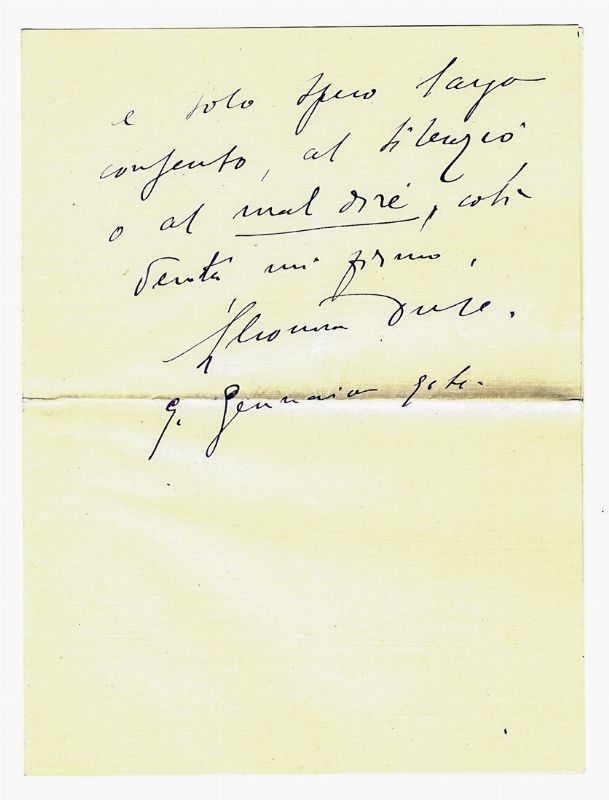 e solo spero largo
consento, al silenzio
o al mal dire, così
mi firmo,
Eleonora Duse.
9. Gennaio